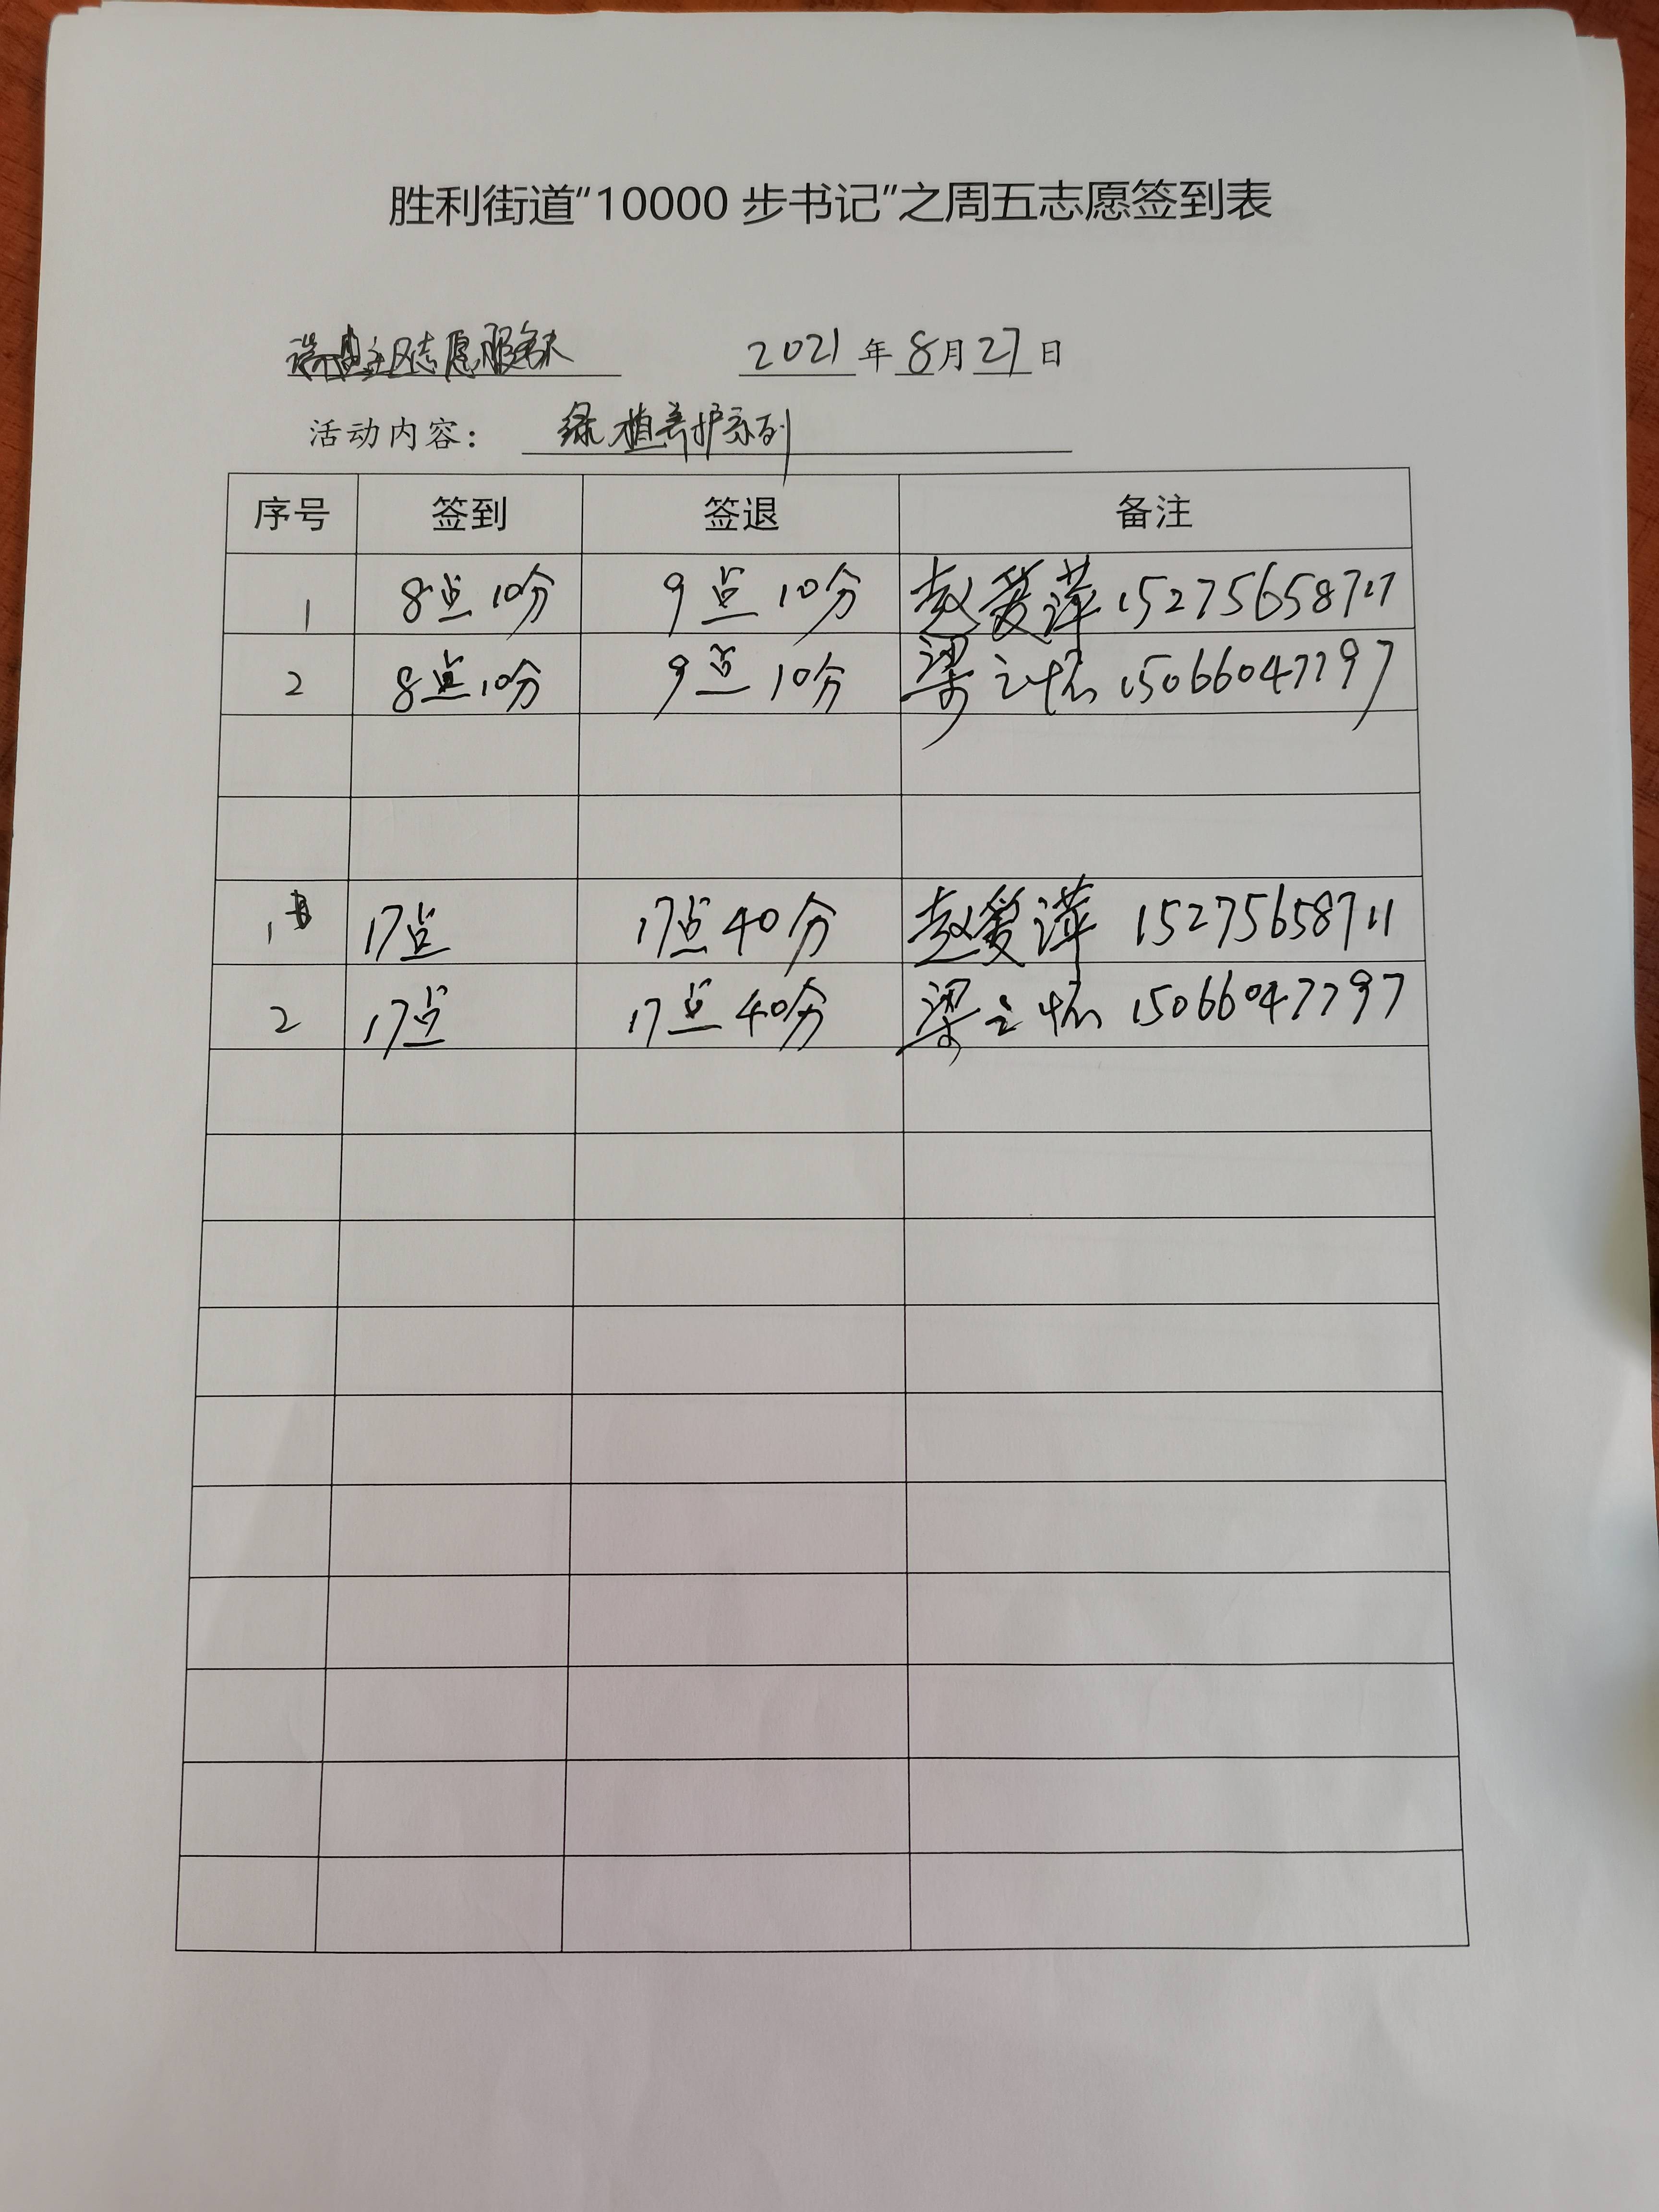 胜利街道“10000 步书记”之周五志愿签到表
志愿服务 2021 年 8 月 27 日
活动内容: 绿植养护系列
序号 签到 签退 备注
1 8点10分 9点10分 赵爱萍 15275658711
2 8点10分 9点10分 梁 15066047797
1 17点 17点40分 赵爱萍 15275658711
2 17点 17点40分 梁 15066047797